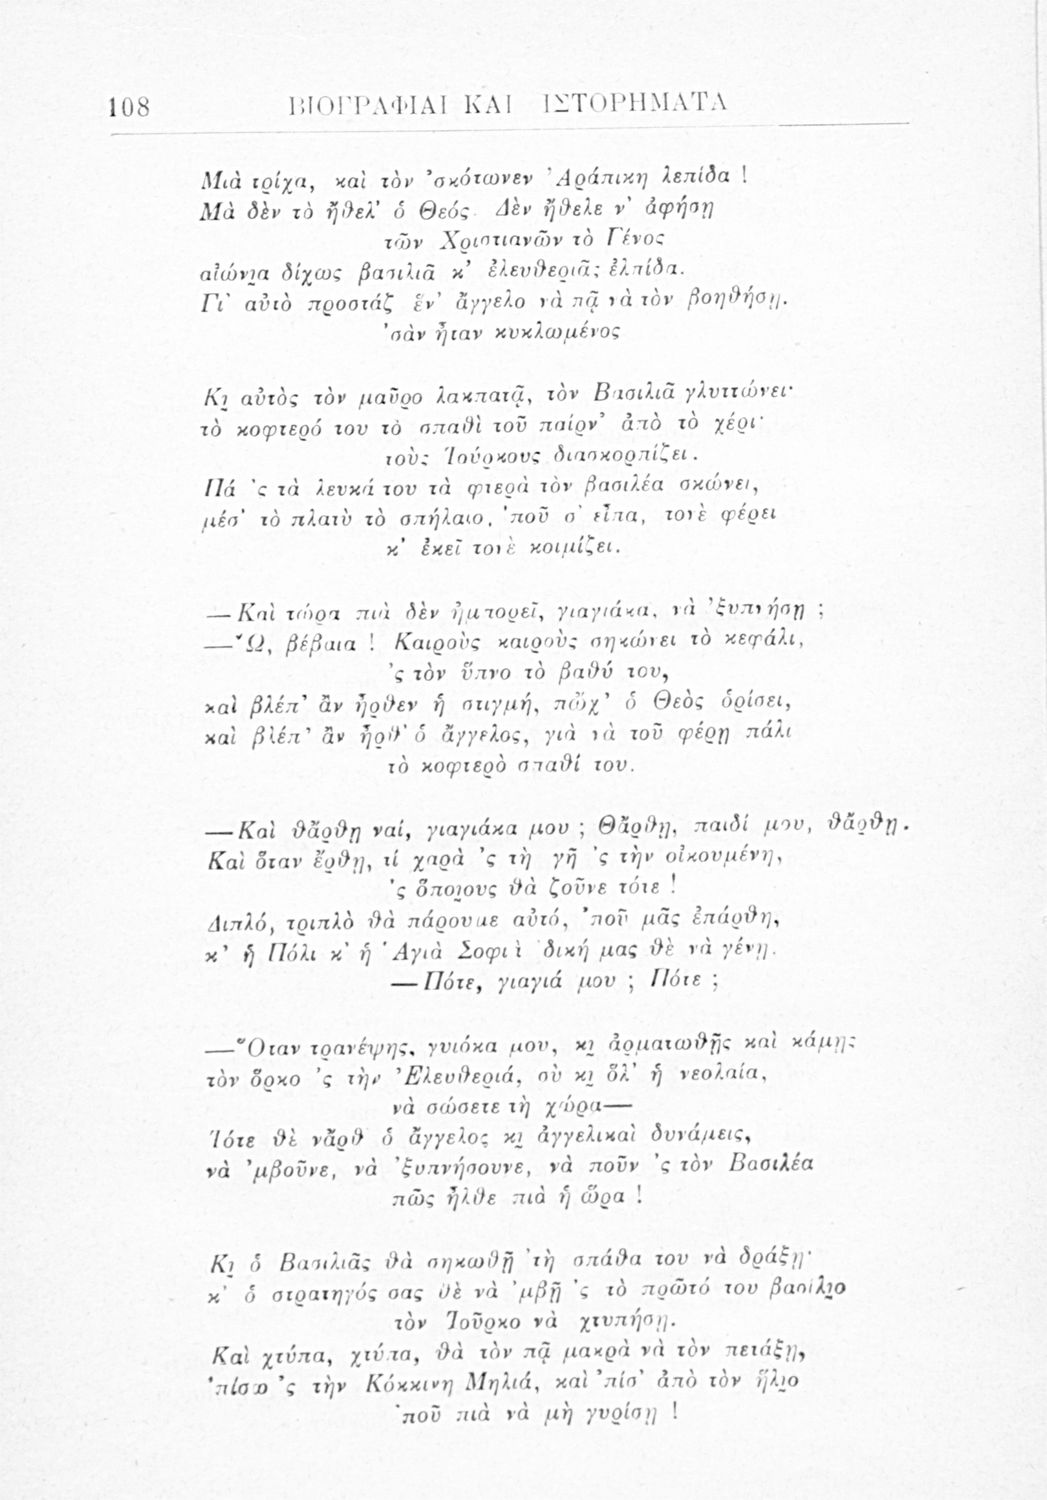 108 ΒΙΟΓΡΑΦΙΑΙ ΚΑΙ ΙΣΤΟΡΗΜΑΤΑ
Μιὰ τρίχα, καὶ τὸν ’σκότωνεν Ἀράπικη λεπίδα !
Μὰ δὲν τὸ ἤθελ’ ὁ Θεός. Δὲν ἤθελε ν’ ἀφήσῃ
τῶν Χριστιανῶν τὸ Γένος
αἰώνι̯α δίχως βασιλιᾶ κ’ ἐλευθεριᾶς ἐλπίδα.
Γι’ αὐτὸ προστάζ’ ἕν’ ἄγγελο νὰ πᾷ νὰ τὸν βοηθήσῃ.
’σὰν ἦταν κυκλωμένος
Κι̯ αὐτὸς τὸν μαῦρο λακπατᾷ, τὸν Βασιλιᾶ γλυττώνει·
τὸ κοφτερό του τὸ σπαθὶ τοῦ παίρν’ ἀπὸ τὸ χέρι·
τοὺς Τούρκους διασκορπίζει.
Πά ’ς τὰ λευκά του τὰ φτερὰ τὸν βασιλέα σκώνει,
μέσ’ τὸ πλατὺ τὸ σπήλαιο, ’ποῦ σ’ εἶπα, τονὲ φέρει
κ’ ἐκεῖ τονὲ κοιμίζει.
— Καὶ τώρα πιὰ δὲν ἠμπορεῖ, γιαγιάκα, νὰ ’ξυπνήσῃ ;
— Ὤ, βέβαια ! Καιροὺς καιροὺς σηκώνει τὸ κεφάλι,
’ς τὸν ὕπνο τὸ βαθύ του,
καὶ βλέπ’ ἂν ἦρθεν ἡ στιγμή, πὤχ’ ὁ Θεὸς ὁρίσει,
καὶ βλέπ’ ἂν ἦρθ’ ὁ ἄγγελος, γιὰ νὰ τοῦ φέρῃ πάλι
τὸ κοφτερὸ σπαθί του.
— Καὶ θἄρθῃ ναί, γιαγιάκα μου ; Θἄρθῃ, παιδί μου, θἄρθῃ.
Καὶ ὅταν ἔρθῃ, τί χαρὰ ’ς τὴ γῆ ’ς τὴν οἰκουμένη,
’ς ὅποι̯ους θὰ ζοῦνε τότε !
Διπλό, τριπλὸ θὰ πάρουμε αὐτό, ’ποῦ μᾶς ἐπάρθη,
κ’ ἡ Πόλι κ’ ἡ Ἁγιὰ Σοφιὰ δική μας θὲ νὰ γένῃ.
— Πότε, γιαγιά μου ; Πότε ;
— Ὅταν τρανέψῃς, γυιόκα μου, κι̯ ἁρματωθῇς καὶ κάμῃς
τὸν ὅρκο ’ς τὴν Ἐλευθεριά, σὺ κι̯ ὅλ’ ἡ νεολαία,
νὰ σώσετε τὴ χώρα—
Τότε θὲ νἄρθ’ ὁ ἄγγελος κι̯ ἀγγελικαὶ δυνάμεις,
νὰ ’μβοῦνε, νὰ ’ξυπνήσουνε, νὰ ποῦν ’ς τὸν Βασιλέα
πῶς ἦλθε πιὰ ἡ ὥρα !
Κι̯ ὁ Βασιλιᾶς θὰ σηκωθῇ ’τὴ σπάθα του νὰ δράξῃ·
κ’ ὁ στρατηγός σας θὲ νὰ ’μβῇ ’ς τὸ πρῶτό του βασίλι̯ο
τὸν Τοῦρκο νὰ χτυπήσῃ.
Καὶ χτύπα, χτύπα, θὰ τὸν πᾷ μακρὰ νὰ τὸν πετάξῃ,
’πίσω ’ς τὴν Κόκκινη Μηλιά, καὶ ’πίσ’ ἀπὸ τὸν ἥλι̯ο
’ποῦ πιὰ νὰ μὴ γυρίσῃ !